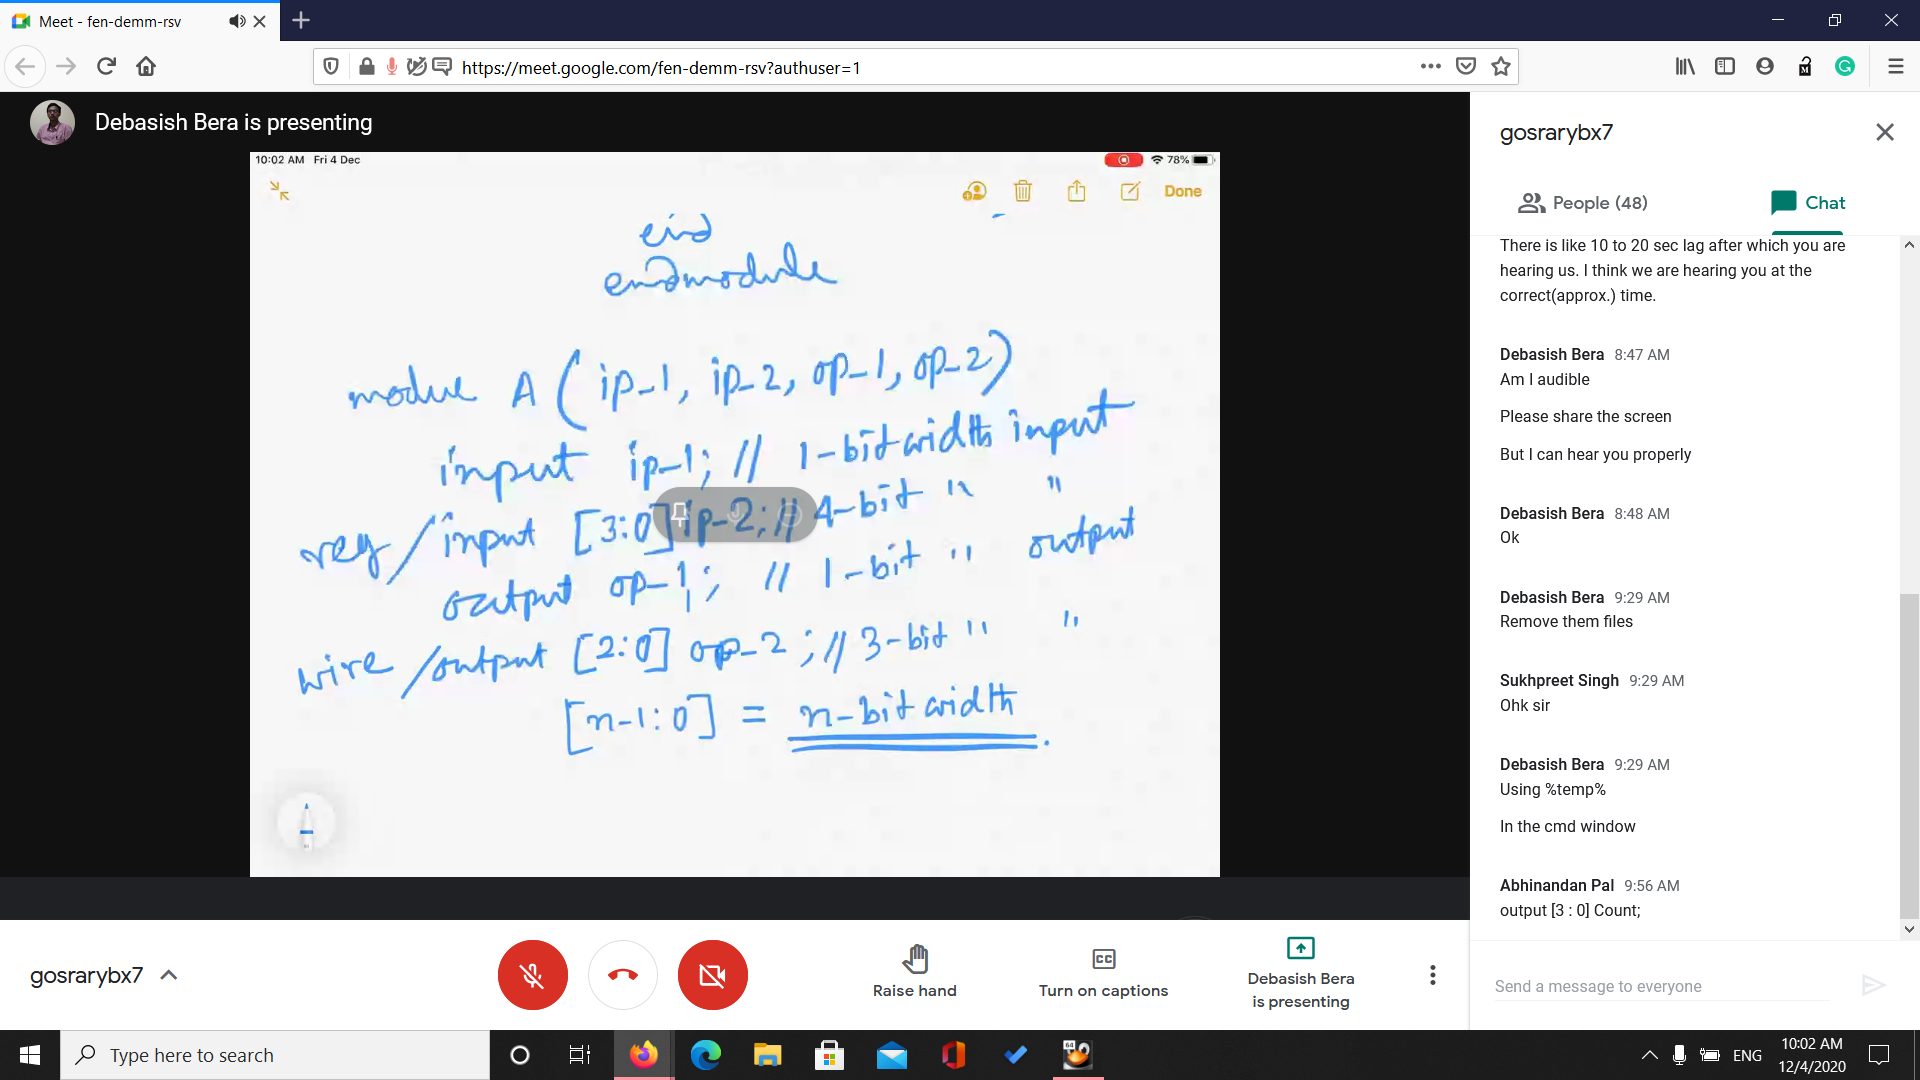 Meet - fen-demm-rsv
https://meet.google.com/fen-demm-rsv?authuser=1
Debasish Bera is presenting
10:02 AM Fri 4 Dec
78%
Done
end
endmodule
module A ( ip-1, ip-2, op-1, op-2)
input ip-1; // 1-bit width input
reg/input [3:0] ip-2; // 4-bit " "
output op-1; // 1-bit " output
wire/output [2:0] op-2 ; // 3-bit " "
[n-1:0] = n-bit width.
gosrarybx7
People (48)
Chat
There is like 10 to 20 sec lag after which you are
hearing us. I think we are hearing you at the
correct(approx.) time.
Debasish Bera 8:47 AM
Am I audible
Please share the screen
But I can hear you properly
Debasish Bera 8:48 AM
Ok
Debasish Bera 9:29 AM
Remove them files
Sukhpreet Singh 9:29 AM
Ohk sir
Debasish Bera 9:29 AM
Using %temp%
In the cmd window
Abhinandan Pal 9:56 AM
output [3 : 0] Count;
Send a message to everyone
gosrarybx7
Raise hand
CC
Turn on captions
Debasish Bera
is presenting
Type here to search
64
ENG
10:02 AM
12/4/2020